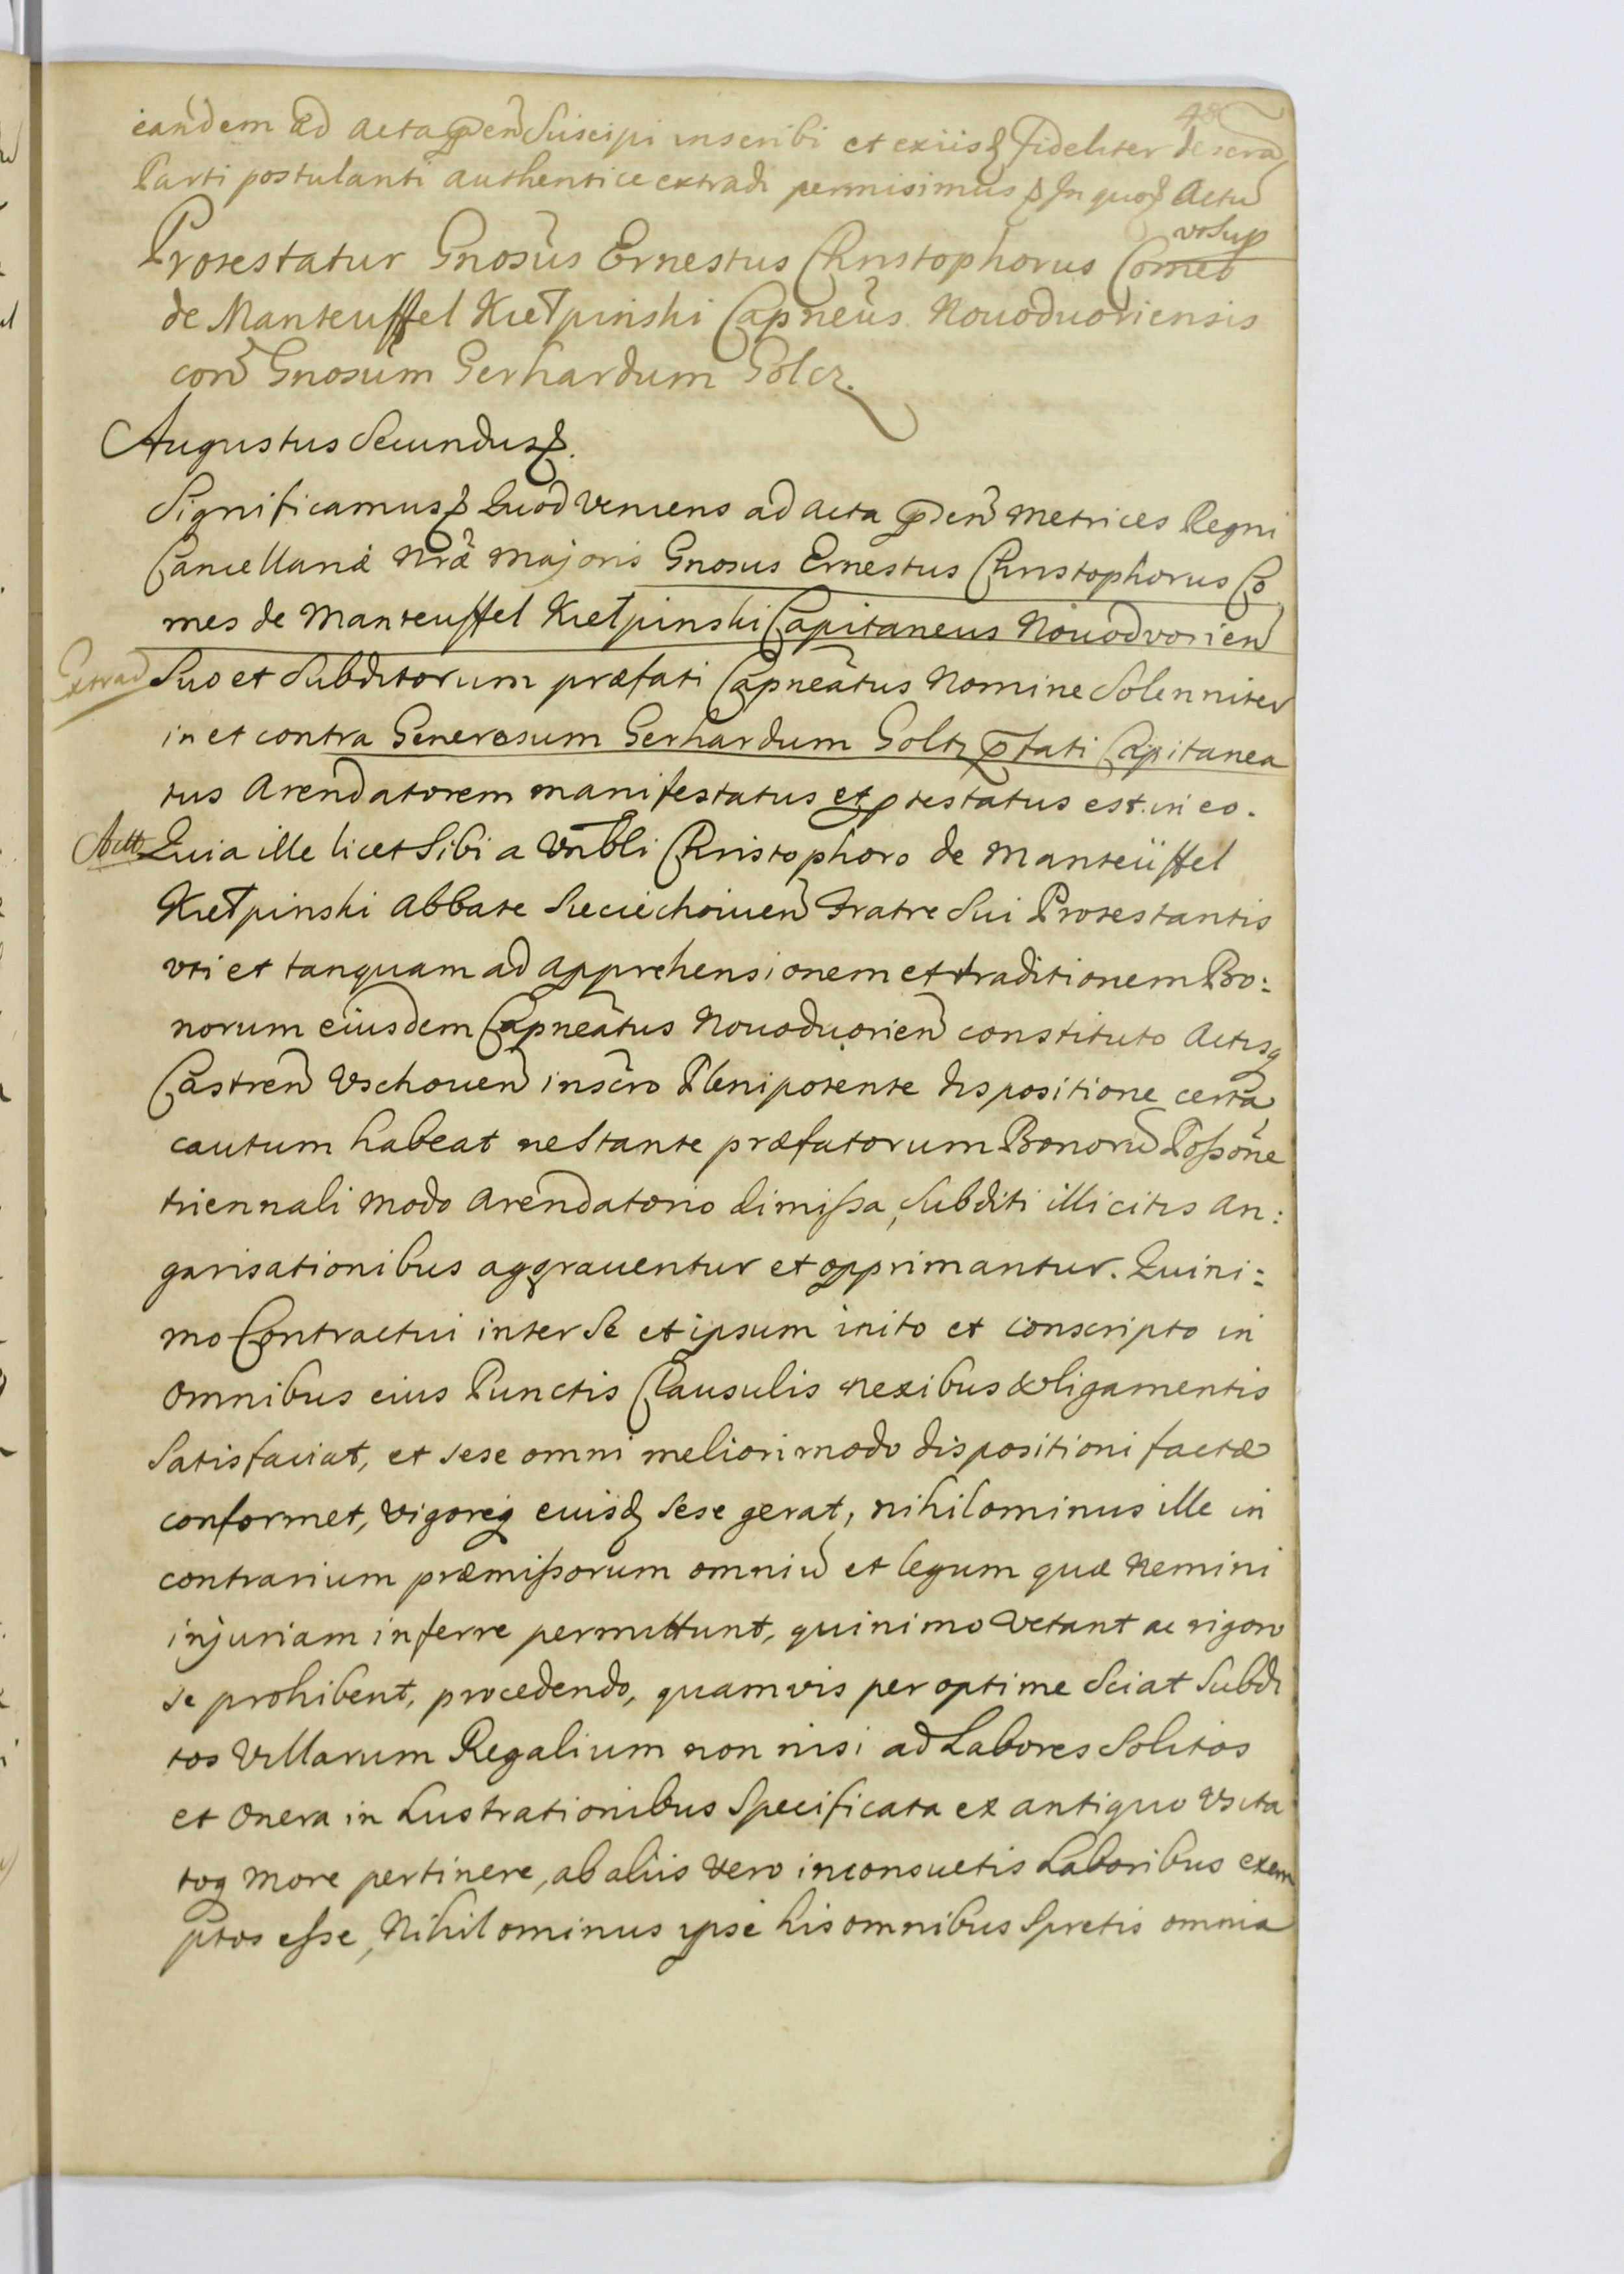 48
eandem ad acta p̃sen̄ Suscipi inscribi et exiisđ fideliter descrā
Parti postulanti authentice extradi permisimus In quor̄ Actū
vt Sup
Protestatur Gnosūs Ernestus Christophorus Comes
de Manteuffel Kiełpinski Capneūs Nouoduoriensis
con̄ Gnosum Gerhardum Golcz.
Augustus Secundus
Significamus Quod veniens ad acta p̃sen̄ Metrices Regni
Cancellariæ Nr̃æ Majoris Gnosus Ernestus Christophorus Co
mes de Manteuffel Kiełpinski Capitaneus Nouodvorien̄
Extrad Suo et Subditorum præfati Capneātus Nomine Solenniter
in et contra Generosum Gerhardum Goltz p̃fati Capitanea
tus Arendatorem manifestatus et ptestatus est. in eo.
Quia ille licet Sibi a Vnbłi Christophoro de Manteüffel
Kiełpinski Abbate Sieciechouien̄ Fratre Sui Protestantis
vti et tanquam ad apprehensionem et traditionem Bo:
norum eiusdem Capneātus Nouoduorien̄ constituto Actisq
Castren̄ Vschouen̄ inscro Plenipotente dispositione certa
cautum habeat ne Stante præfatorum Bonorū Possõne
triennali modo Arendatorio dimissa, Subditi illicitis An:
garisationibus aggrauentur et opprimantur. Quini:
mo Contractui inter Se et ipsum inito et conscripto in
omnibus eius Punctis Clausulis nexibus & ligamentis
Satisfaciat, et sese omni meliori modo dispositioni factæ
conformet, vigoreq̃ eiusđ sese gerat, nihilominus ille in
contrarium præmissorum omniū et legum quæ Nemini
injuriam inferre permittunt, quinimo Vetant ac rigoro
se prohibent, procedendo, quamvis per optime Sciat Subdi
tos Villarum Regalium non nisi ad Labores Solitos
et Onera in Lustrationibus Specificata ex antiquo Vsita
toq More pertinere, ab aliis Vero inconsuetis Laboribus exem
ptos esse, Nihilominus ipse his omnibus Spretis omnia